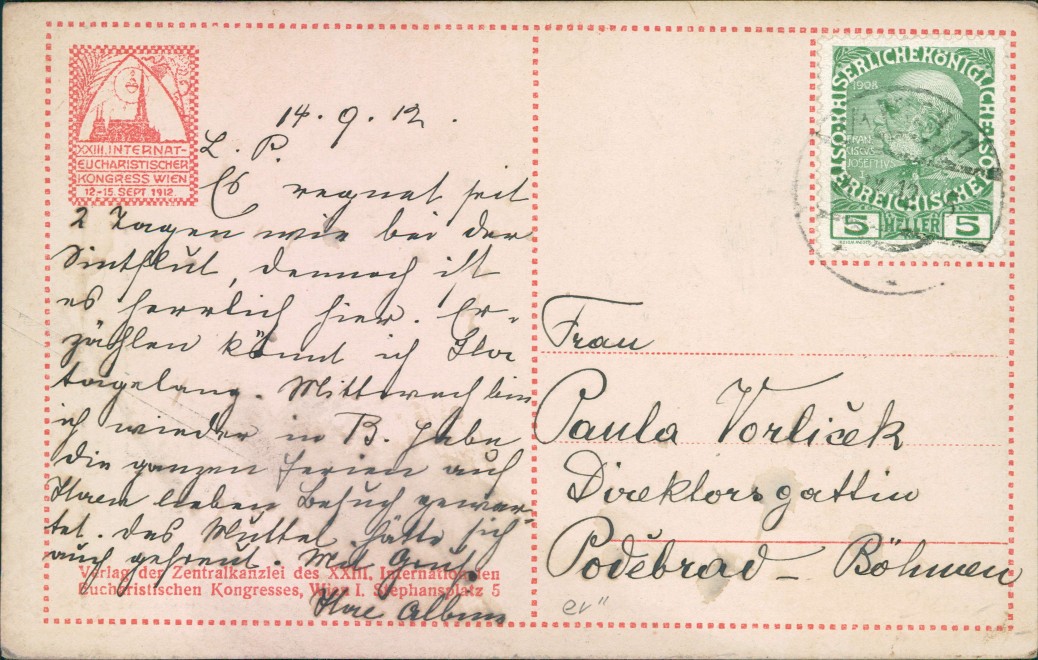 XXIII. INTERNAT-
EUCHARISTISCHER
KONGRESS WIEN
12.-15. SEPT 1912.
14. 9. 12.
L. P.
Es regnet seit
2 Tagen wie bei der
Sintflut, dennoch ist
es herrlich hier. Er-
zählen könnt ich
tagelang. Mittwoch bin
ich wieder in B. Habe
die ganzen Ferien auf
Ihren lieben Besuch gewar-
tet. Das Muttel hätte sich
auch gefreut. Mit Gruß
Ihre
Verlag der Zentralkanzlei des XXIII. Internationalen
Eucharistischen Kongresses, Wien I. Stephansplatz 5
KAISERLICHEKÖNIGLICHE ÖSTERREICHISCHE POST
1908
FRAN
CISCVS
JOSEPHVS
5 HELLER 5
Frau
Paula Vorliček
Direktorsgattin
Poděbrad – Böhmen